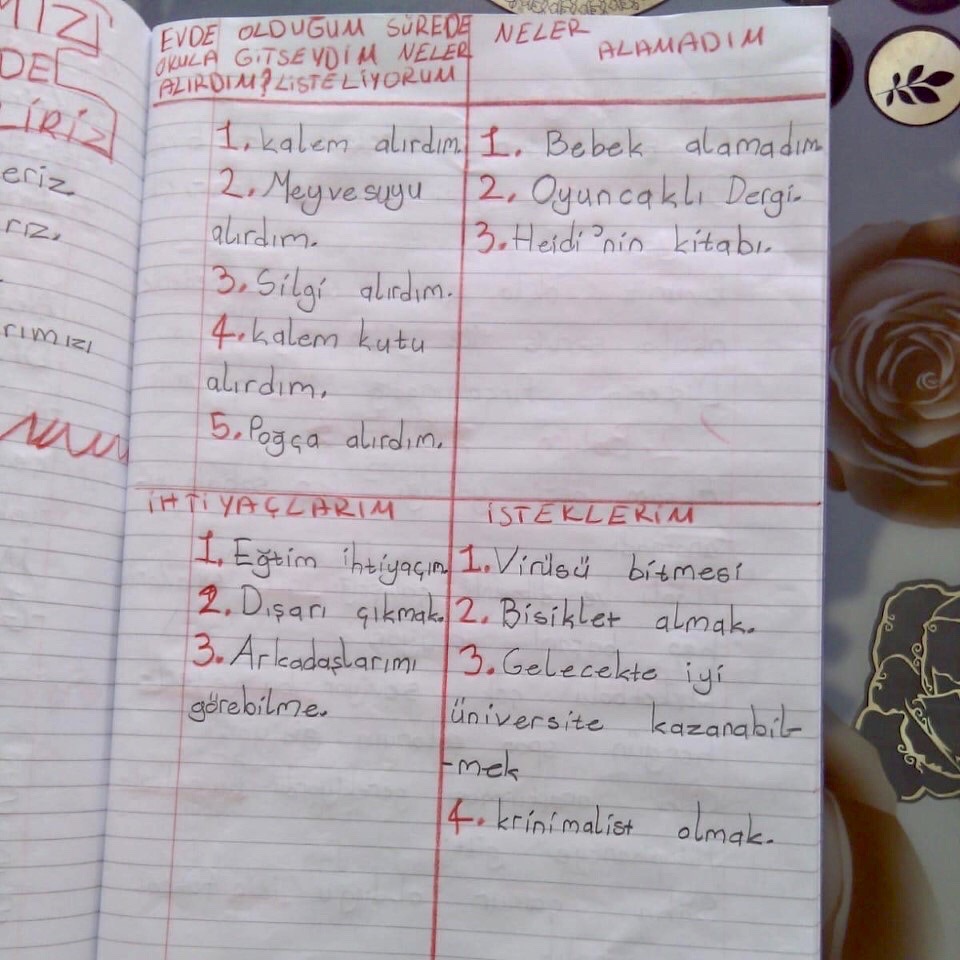 MIZ
DE
LİRİZ
eriz
rız.
rımızı
EVDE OLDUĞUM SÜREDE
OKULA GİTSEYDİM NELER
ALIRDIM? LİSTELİYORUM
1. kalem alırdım.
2. Meyvesuyu
alırdım.
3. Silgi alırdım.
4. kalem kutu
alırdım.
5. Poğça alırdım.
NELER
ALAMADIM
1. Bebek alamadım
2. Oyuncaklı Dergi.
3. Heidi'nin kitabı.
İHTİYAÇLARIM
1. Eğtim ihtiyaçım
2. Dışarı çıkmak.
3. Arkadaşlarımı
görebilme.
İSTEKLERİM
1. Virüsü bitmesi
2. Bisiklet almak.
3. Gelecekte iyi
üniversite kazanabil-
-mek
4. krinimalist olmak.